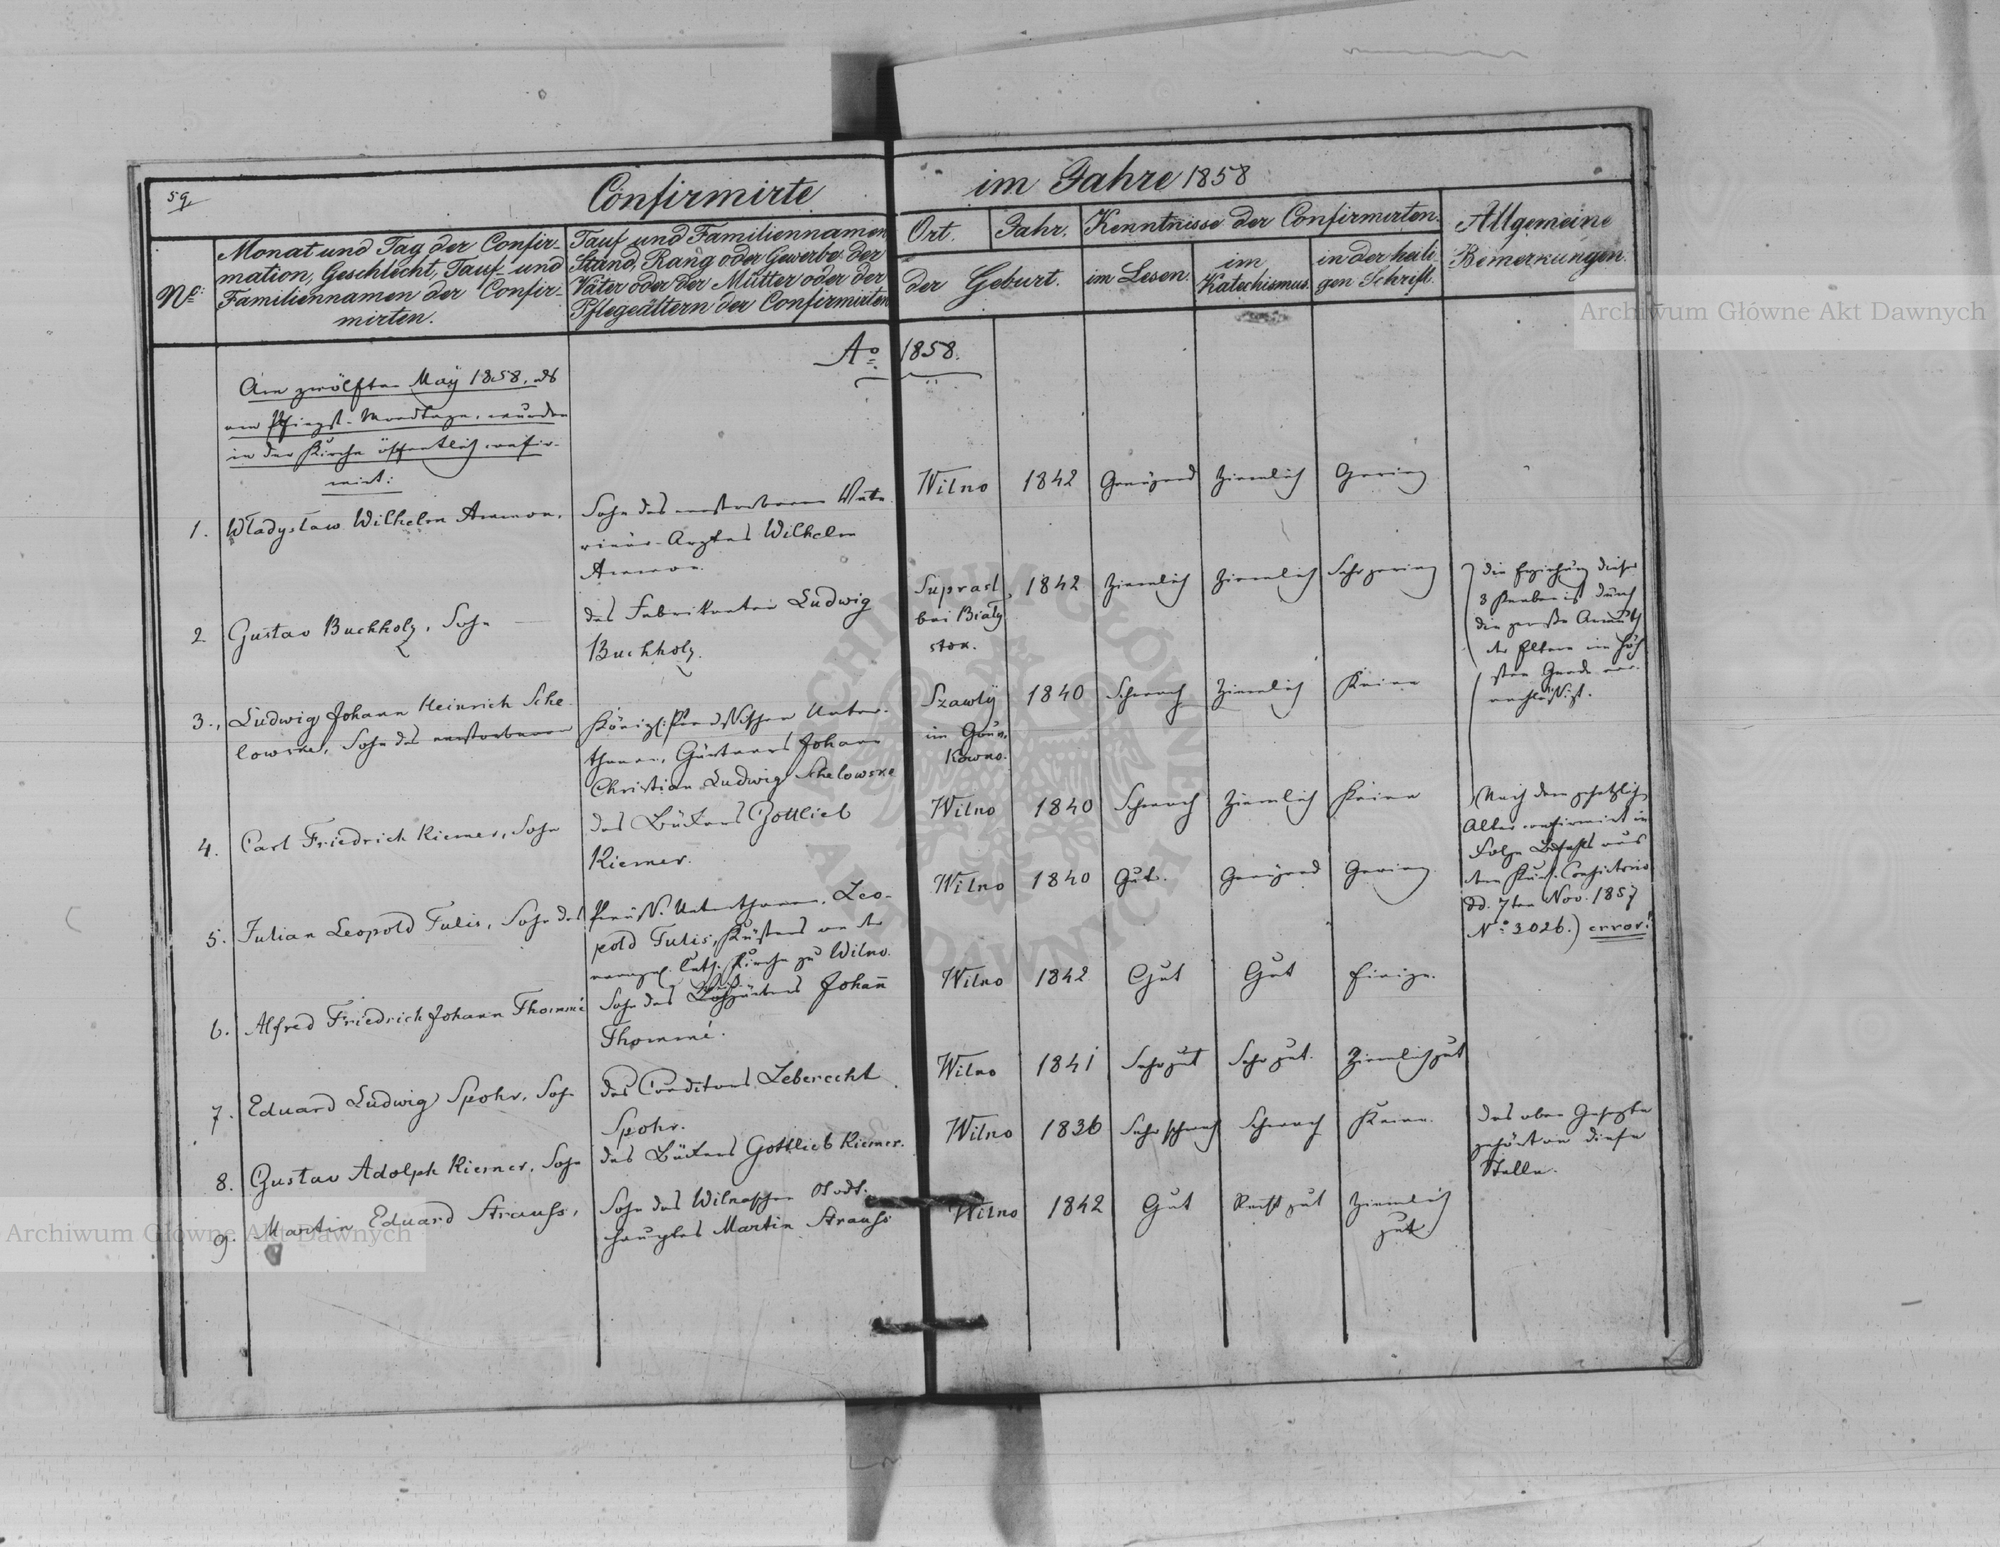 59
Confirmirte im Jahre 1858
No:
Monat und Tag der Confir-
mation, Geschlecht, Tauf- und
Familiennamen der Confir-
mirten.
Tauf und Familiennamen
Stand, Rang oder Gewerbe der
Väter oder der Mütter oder der
Pflegeältern der Confirmirten
Ort. Jahr.
der Geburt.
Kenntnisse der Confirmirten.
im Lesen.
im
Katechismus.
in der heili-
gen Schrift.
Allgemeine
Bemerkungen.
Ao. 1858.
Am zwölften May 1858, als
am Pfingst-Mondtage, wurden
in der Kirche öffentlich confir-
mirt:
1. Władysław Wilhelm Ammon,
Sohn des verstorbenen Vete-
rinär-Arztes Wilhelm
Ammon.
Wilno 1842 Genügend Ziemlich Gering
2 Gustav Buchholz, Sohn
des Fabrikanten Ludwig
Buchholz.
Suprasl, 1842 Ziemlich Ziemlich Sehr gering
bei Biały
stok.
die Erziehung dieser
3 Knaben ist durch
die große Armuth
der Eltern im höch
sten Grade ver-
nachlässigt.
3., Ludwig Johann Heinrich Sche-
lowske, Sohn des verstorbenen
Königl. Preussischen Unter-
thanen, Gärtners Johann
Christian Ludwig Schelowske
Szawly 1840 Schwach Ziemlich Keine
im Gouv.
Kowno.
4. Carl Friedrich Riemer, Sohn
des Bäckers Gottlieb
Riemer.
Wilno 1840 Schwach Ziemlich Keine
(Nach dem gesetzlichen
Alter confirmirt in
Folge Befehls aus
dem Kurl. Consistorio
dd. 7ten Nov. 1857
No: 3026.) error!
5. Julian Leopold Tulis, Sohn des
Preuss. Unterthanen, Leo-
pold Tulis, Küsters an der
evangel. luth. Kirche zu Wilno.
Wilno 1840 Gut. Genügend Gering
6. Alfred Friedrich Johann Thommé
Sohn des Johann
Thommé.
Wilno 1842 Gut Gut Einige.
7. Eduard Ludwig Spohr, Sohn
des Conditors Leberecht
Spohr.
Wilno 1841 Sehr gut Sehr gut. Ziemlich gut
8. Gustav Adolph Riemer, Sohn
des Bäckers Gottlieb Riemer.
Wilno 1836 Sehr schwach Schwach Keine.
das oben Gesagte
gehört an diese
Stelle.
9. Martin Eduard Strauss,
Sohn des Wilnaschen Stadt-
hauptes Martin Strauss
Wilno 1842 Gut Recht gut Ziemlich
gut
Archiwum Główne Akt Dawnych
Archiwum Główne Akt Dawnych
ARCHIWUM GŁÓWNE AKT DAWNYCH